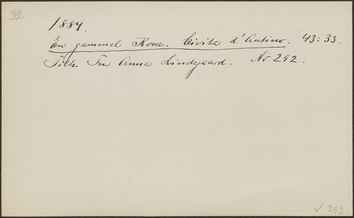 1884.
En gammel Kone. Civita d'Antino. 43:33.
Tilh. Frk Anna Lindgaard. No 292.